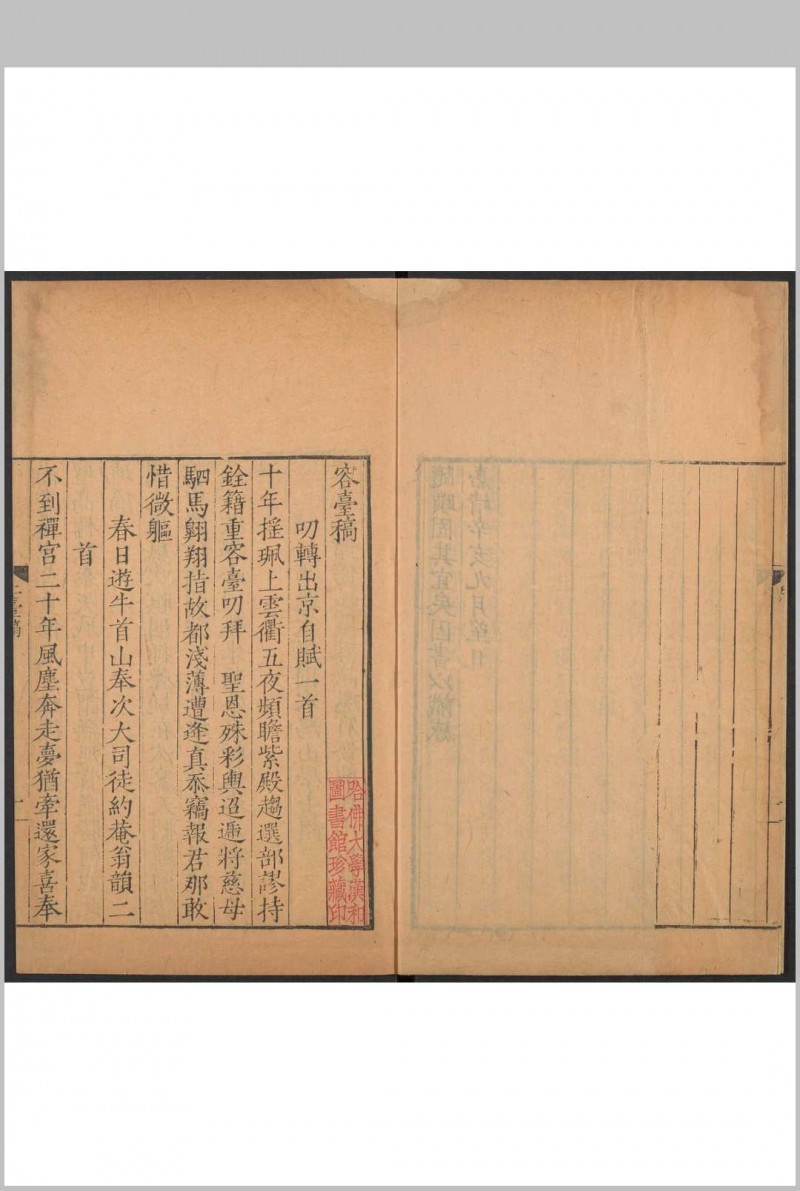 容臺稿
叨轉出京自賦一首
十年搖珮上雲衢五夜頻瞻紫殿趨選部謬持
銓籍重容臺叨拜　聖恩殊彩輿迢遞將慈母
駟馬翱翔指故都淺薄遭逢真忝竊報君那敢
惜微軀
春日遊牛首山奉次大司徒約菴翁韻二
首
不到禪宮二十年風塵奔走夢猶牽還家喜奉
哈佛大學漢和
圖書館珍藏印